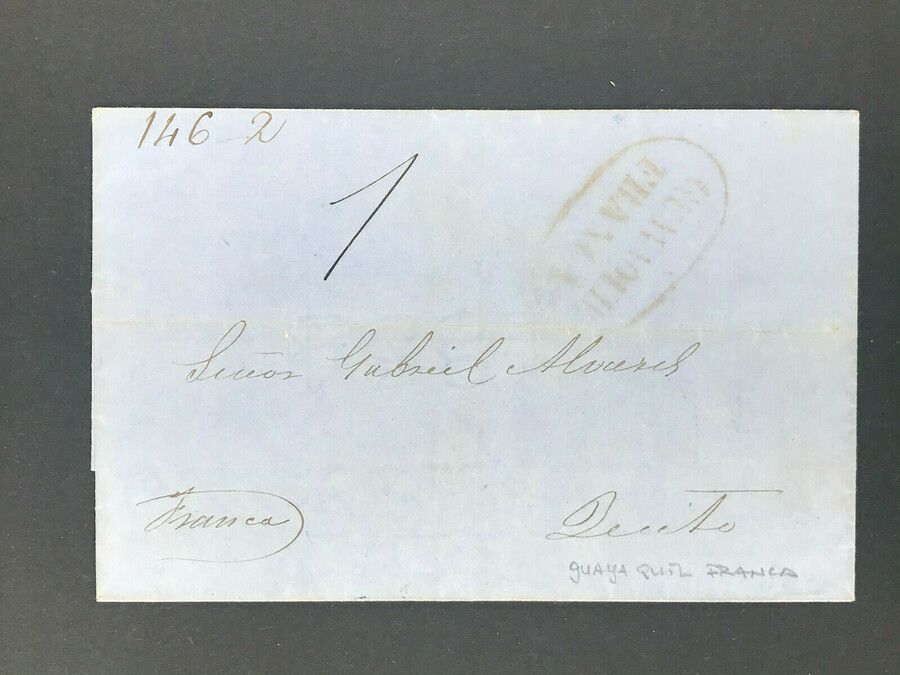 146-2
1
FRANCA
Señor Gabriel Alvarez
Franca
Quito
GUAYAQUIL FRANCA